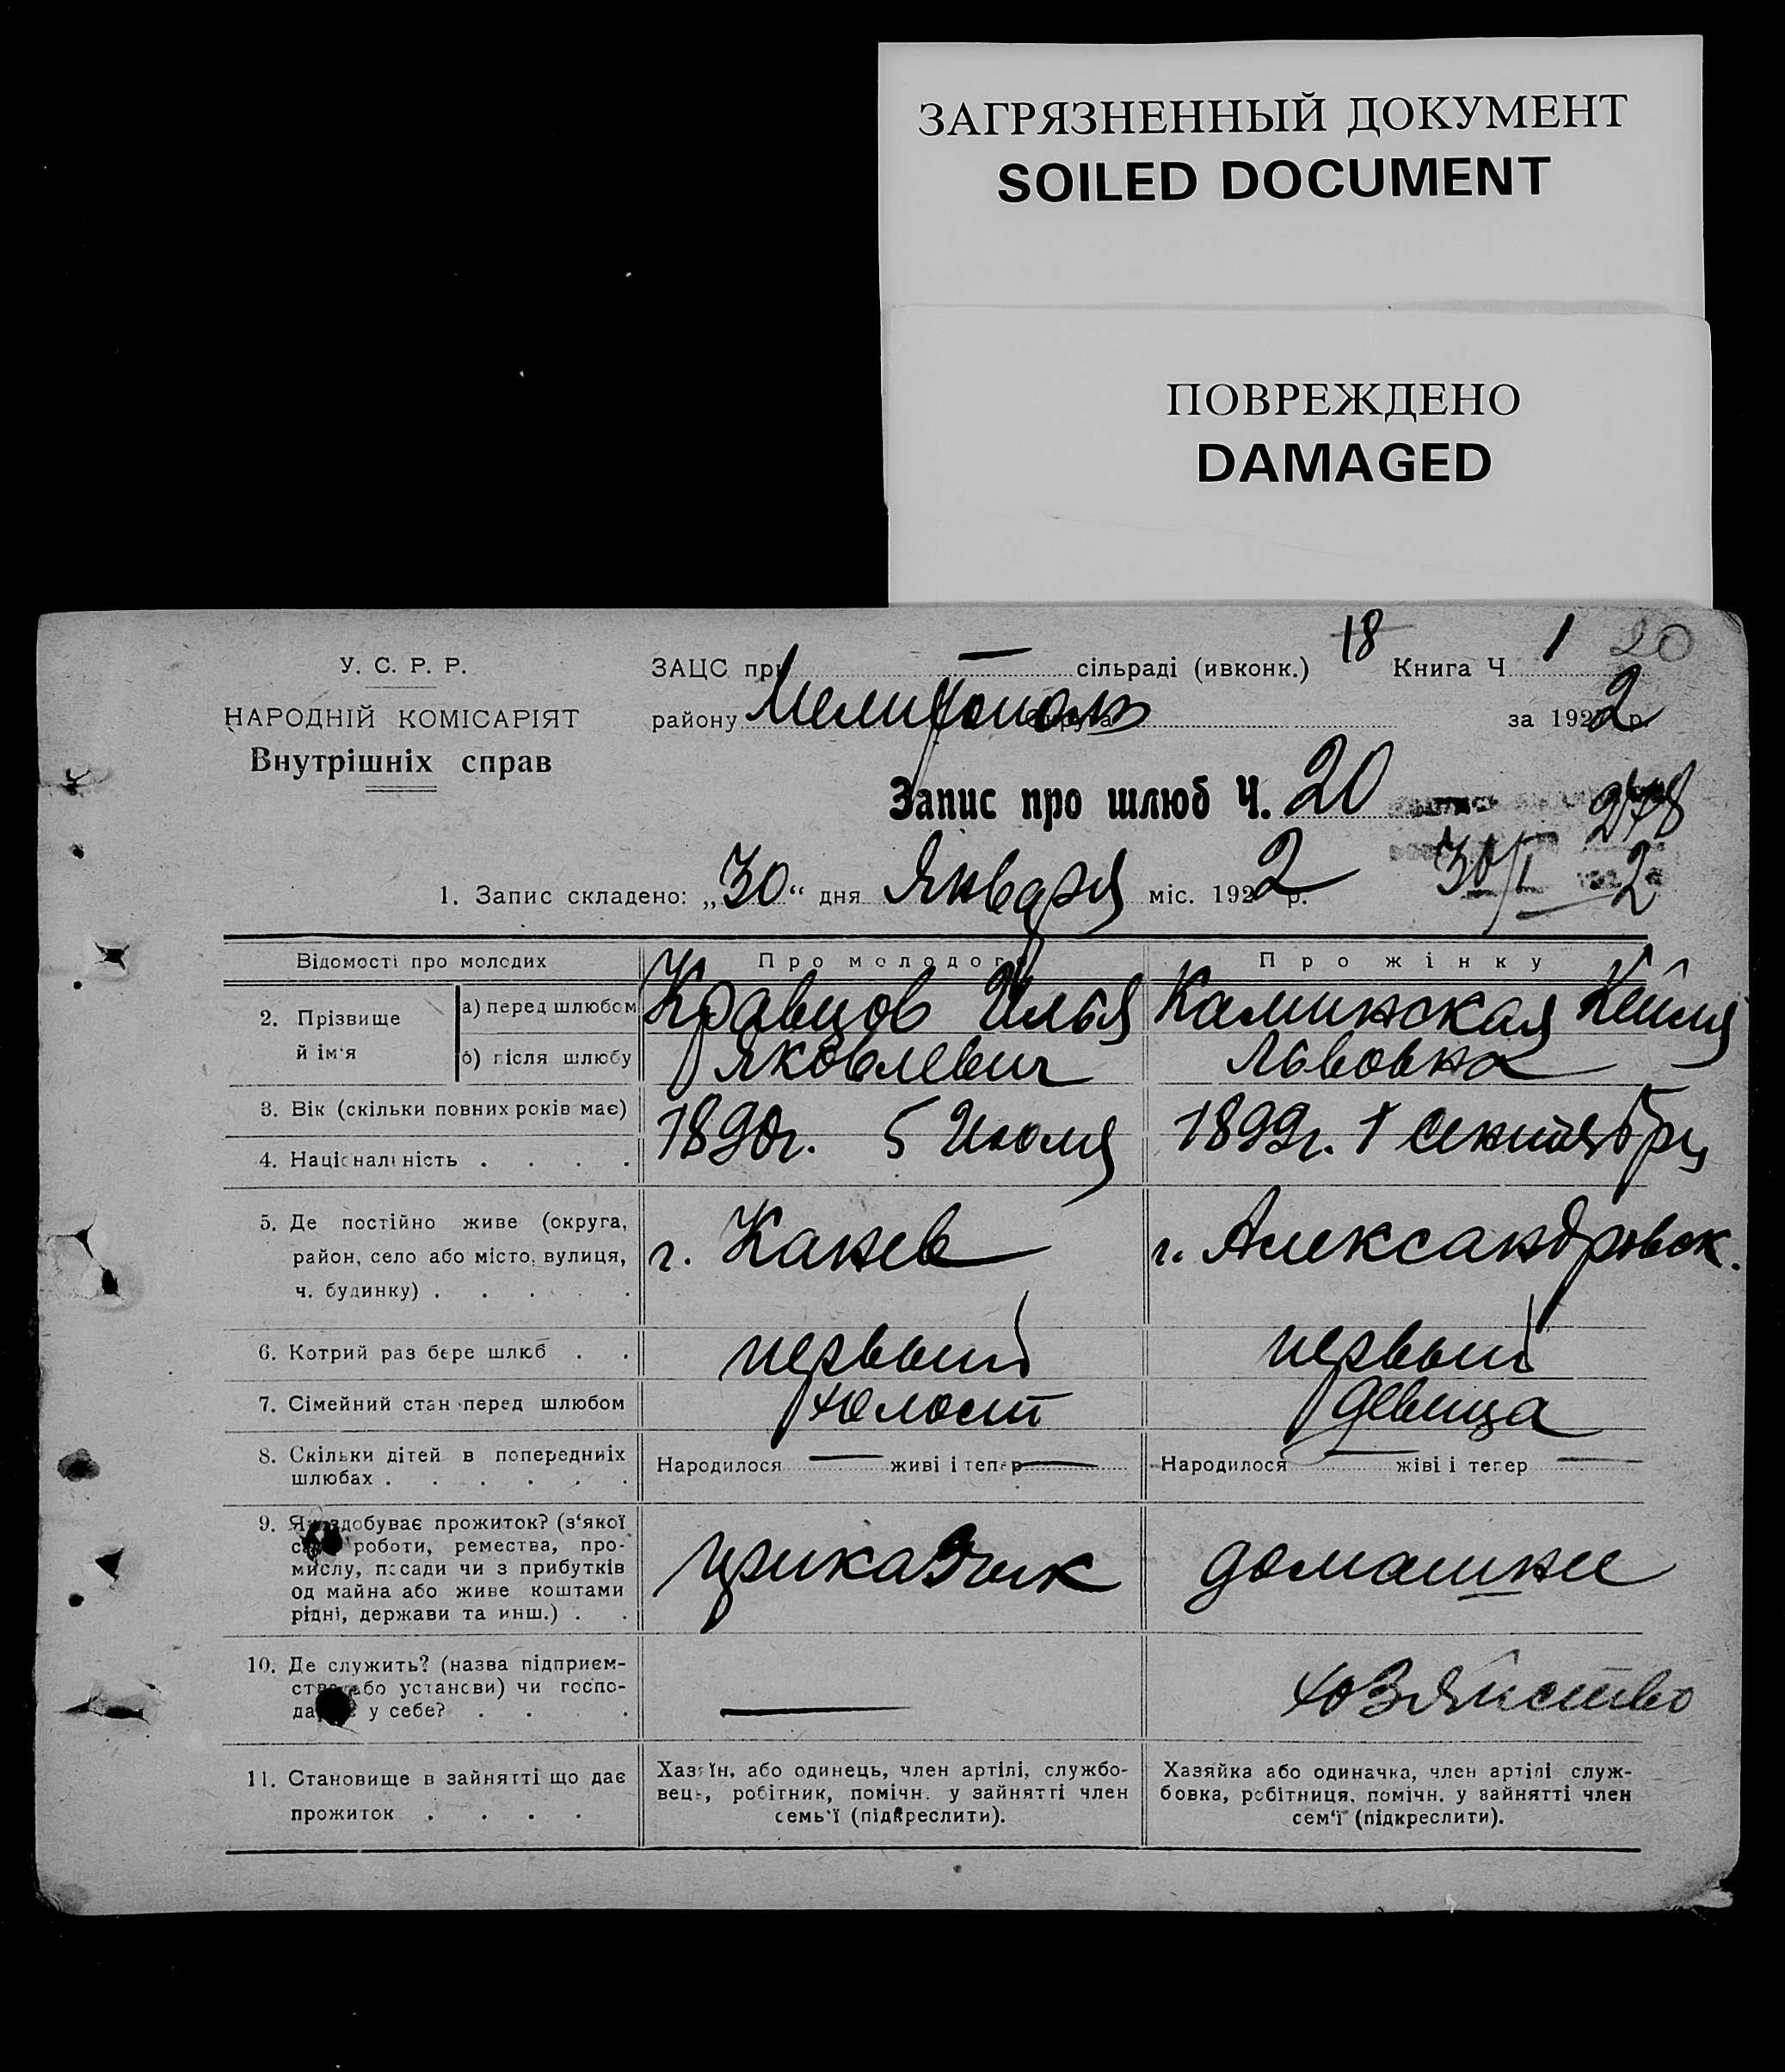 ЗАГРЯЗНЕННЫЙ ДОКУМЕНТ
SOILED DOCUMENT
ПОВРЕЖДЕНО
DAMAGED
18 1 20
У. С. Р. Р.
ЗАЦС при — сільраді (ивконк.) Книга Ч
НАРОДНІЙ КОМІСАРІЯТ
району за 1922 р.
Внутрішніх справ
Запис про шлюб Ч. 20
278
1. Запис складено: „30“ дня Января міс. 1922 р. 30/I 2
Відомості про молодих
Про молодого
Про жінку
2. Прізвище й ім'я
а) перед шлюбом
б) після шлюбу
Кравцов Илья
Яковлевич
Каминская Кейля
Львовна
3. Вік (скільки повних років має)
4. Національність . . . .
1890г. 5 Июля
1899г. 1 сентября
5. Де постійно живе (округа,
район, село або місто, вулиця,
ч. будинку) . . . . .
г. Канев
г. Александровск.
6. Котрий раз бере шлюб . .
первый
первый
7. Сімейний стан перед шлюбом
холост
девица
8. Скільки дітей в попередніїх
шлюбах . . . . . .
Народилося — живі і тепер —
Народилося — жіві і тепер —
9. Як здобуває прожиток? (з'якої
роботи, ремества, про-
мислу, посади чи з прибутків
од майна або живе коштами
рідні, держави та инш.) . .
приказчик
домашнее
10. Де служить? (назва підприєм-
ства або установи) чи госпо-
у себе? . . . .
—
хозяйство
11. Становище в зайнятті що дає
прожиток . . . .
Хазяїн, або одинець, член артілі, службо-
вець, робітник, помічн. у зайнятті член
семь'ї (підкреслити).
Хазяйка або одиначка, член артілі служ-
бовка, робітниця, помічн. у зайнятті член
сем'ї (підкреслити).